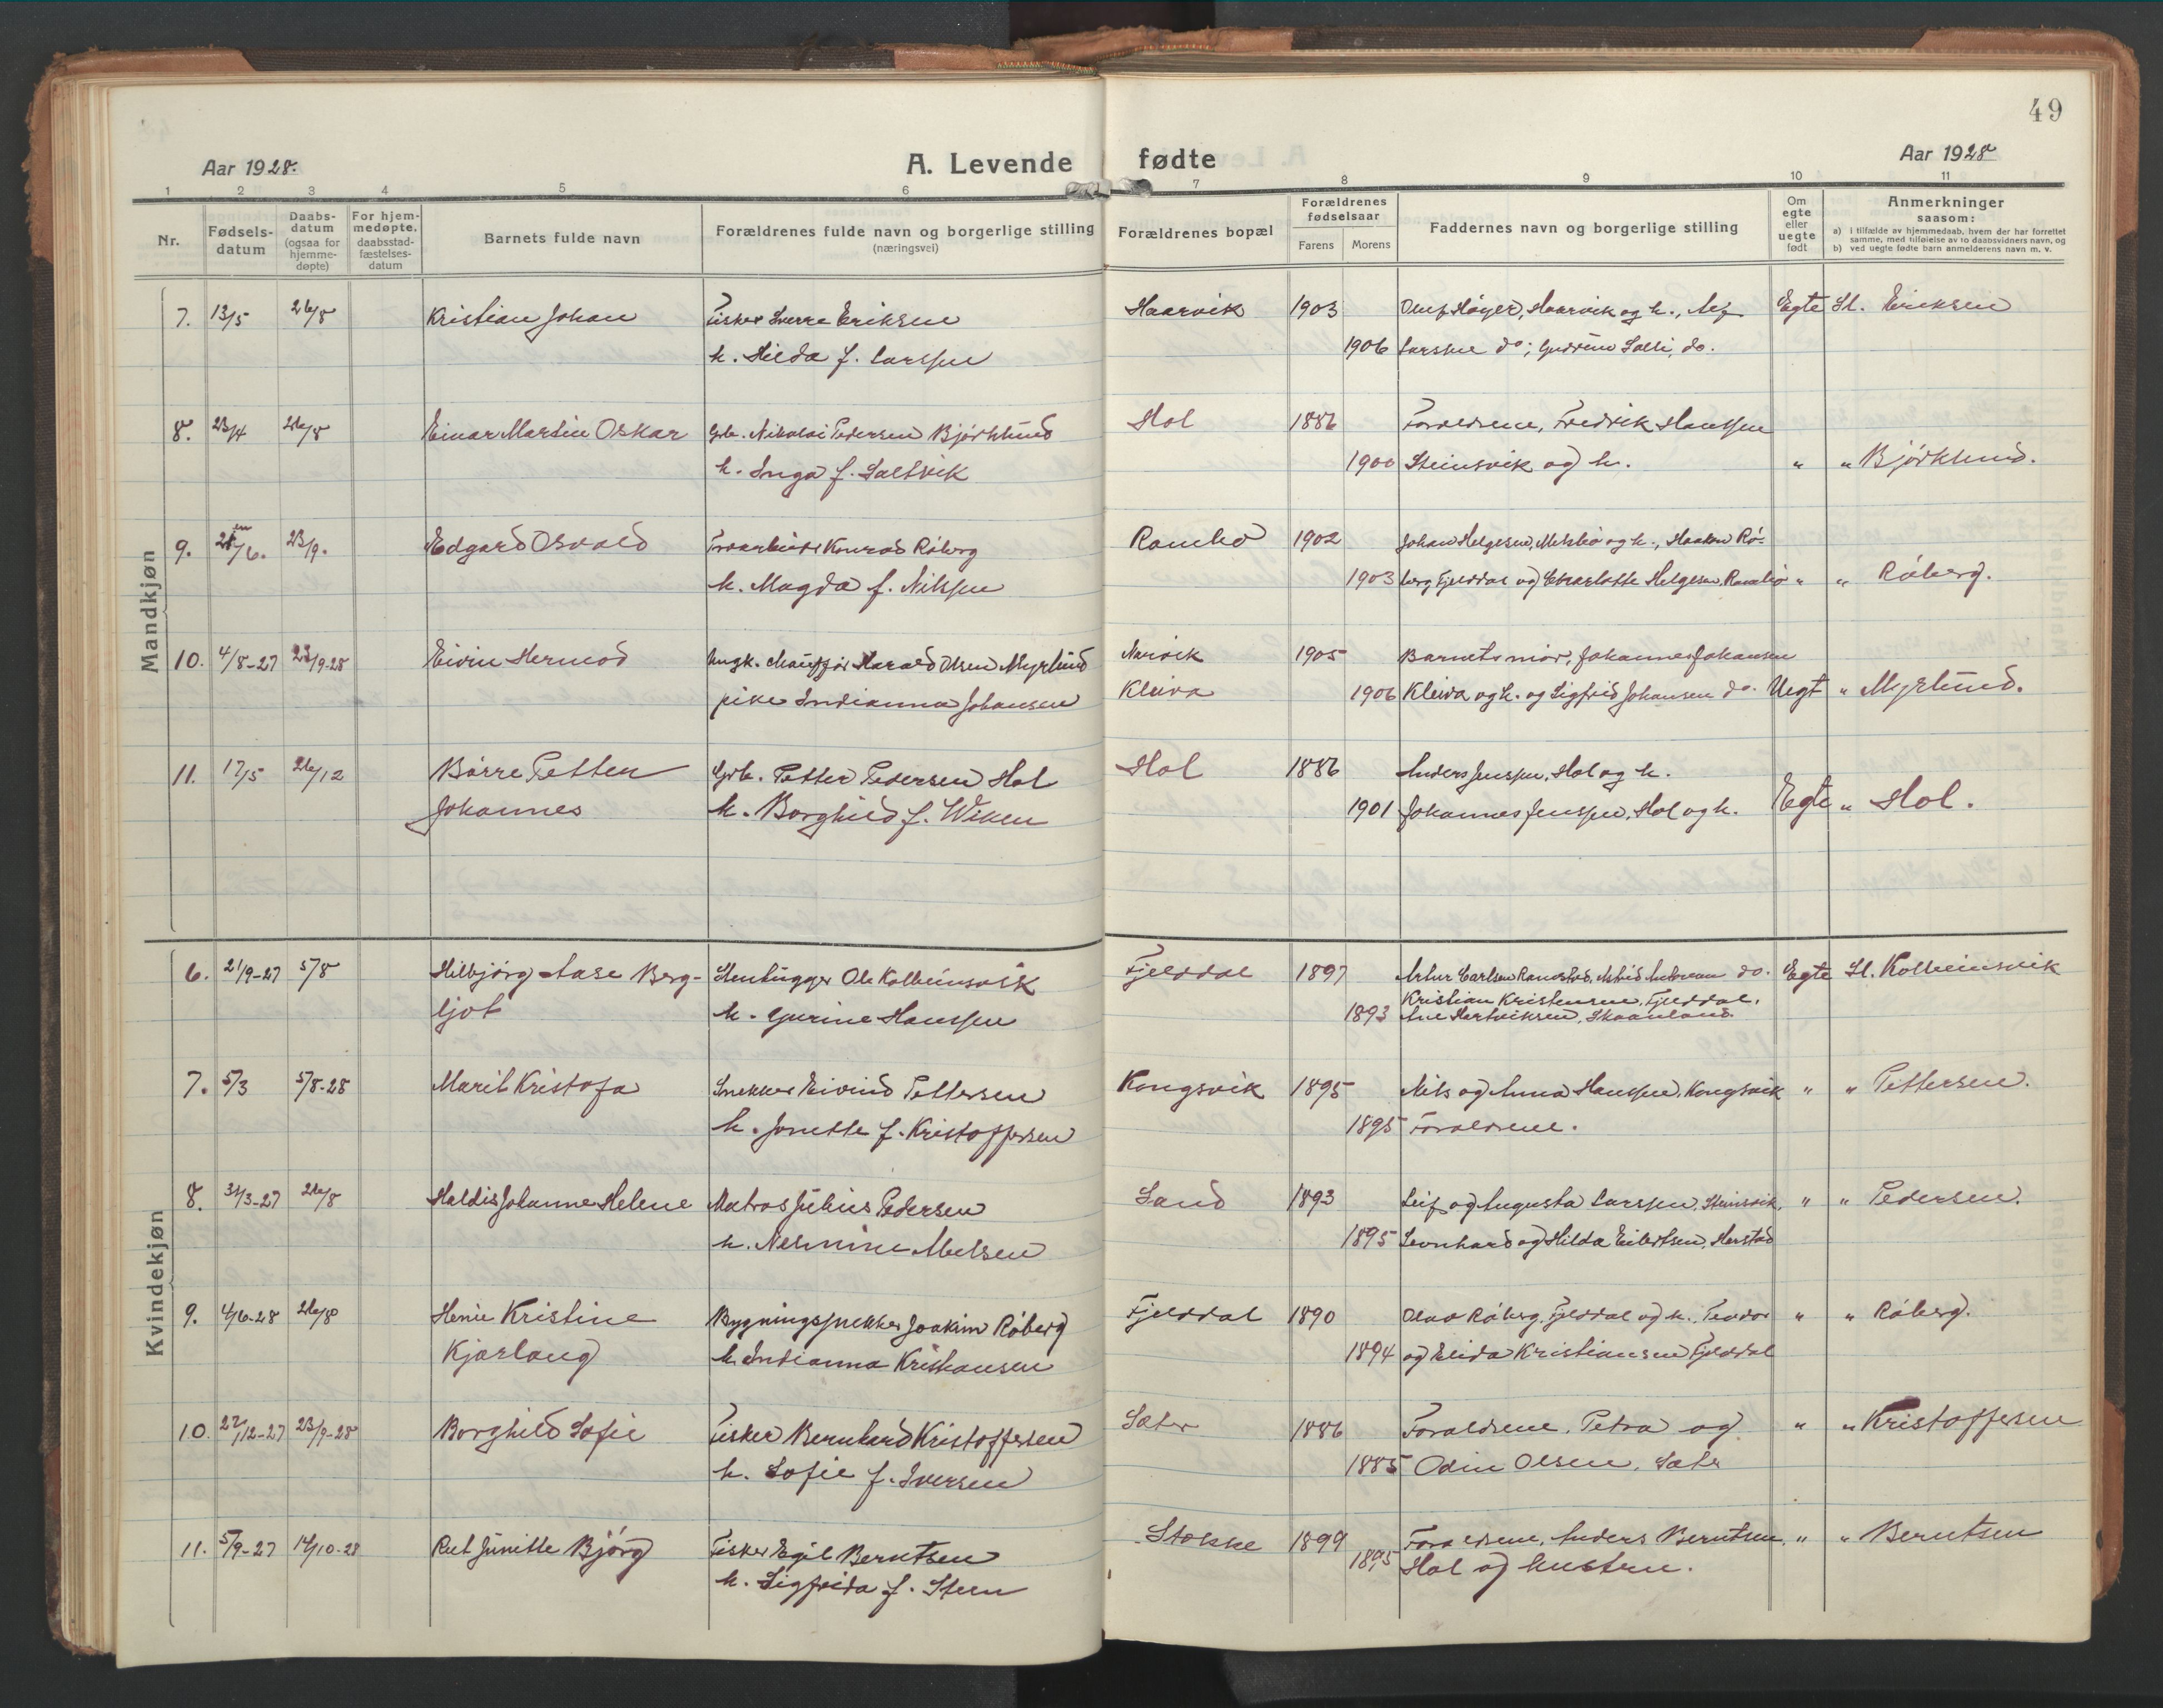 49
Aar 1928.
A. Levende fødte
Aar 1928
1 2 3 4 5 6 7 8 9 10 11
Nr.
Fødsels-
datum
Daabs-
datum
(ogsaa for
hjemme-
døpte)
For hjem-
medøpte,
daabsstad-
fæstelses-
datum
Barnets fulde navn
Forældrenes fulde navn og borgerlige stilling
(næringsvei)
Forældrenes bopæl
Forældrenes
fødselsaar
Farens Morens
Faddernes navn og borgerlige stilling
Om
egte
eller
uegte
født
Anmerkninger
saasom:
a) i tilfælde av hjemmedaab, hvem der har forrettet
samme, med tilføielse av to daabsvidners navn, og
b) ved uegte fødte barn anmelderens navn m. v.
Mandkjøn
7. 13/5 26/8 Kristian Johan Fisker Sverre Eriksen Haarvik 1903 Oluf Høyer, Haarvik og h., Egte St. Eriksen
h. Hilda f. Larssen 1906 Larssen do; Gudrun Salti, do.
8. 23/4 26/8 Einar Martin Oskar Grb. Nikolai Pedersen Bjørklund Hol 1886 Forældrene, Fredrik Hanssen
h. Inga f. Saltvik 1900 Steinsvik og h. " " Bjørklund.
9. 23/9. Edgard Osvald Konrad Råberg Rambø 1902 Johan Helgesen, og h., Haakon Rå-
h. Magda f. Nilssen 1903 berg Fjelddal og Charlotte Helgesen, Rambø " " Råberg.
10. 4/8-27 23/9-28 Eivin Hermod Ungk. chauffør Harald Olsen Myrlund Narvik 1905 Barnets mor, Johannes Johansen
pike Indianna Johansen Kleiva 1906 Kleiva og h. og Sigfrid Johansen do. Uegt " Myrlund.
11. 17/5 26/12 Børre Petter Grb. Petter Pedersen Hol Hol 1886 Anders Jenssen, Hol og h.
Johannes h. Borghild f. Wiken 1901 Johannes Jenssen, Hol og h. Egte " Hol.
Kvindekjøn
6. 21/9-27 5/8 Hilbjørg Aase Berg- Stenhugger Ole Kolbeinsvik Fjelddal 1897 Artur Carlsen Ramstad, Astrid Andreassen do. Egte St. Kolbeinsvik
ljot h. Gurine Hanssen Kristian Kristensen, Fjelddal.
1893 Ane Hartviksen, Skaanland.
7. 5/3 5/8-28 Marit Kristofa Snekker Eivind Pettersen Kongsvik 1895 Nils og Anna Hanssen, Kongsvik " " Pettersen.
h. Jonette f. Kristoffersen 1895 Forældrene.
8. 31/3-27 26/8 Haldis Johanne Helene Matros Julius Pedersen Sand 1893 Leif og Augusta Larssen, Steinsvik, " " Pedersen.
h. Nelsine 1895 Leonhard og Hilda Eilertsen, Herstad
9. 4/6-28 26/8 Henie Kristine Bygningssnekker Joakim Råberg Fjelddal 1890 Olav Råberg, Fjelddal og h., Teodor " " Råberg.
Kjørlaug h. Indianna Kristiansen 1894 og Elida Kristiansen Fjelddal
10. 27/12-27 23/9-28 Borghild Sofie Fisker Bernhard Kristoffersen Sæter 1886 Forældrene. Petra og " " Kristoffersen
h. Sofie f. Iversen 1885 Odin Olsen, Sæter
11. 5/9-27 14/10-28 Rut Junitte Bjørg Fisker Egil Berntsen Stokke 1899 Forældrene, Anders Berntsen, " " Berntsen
h. Sigfrida f. Steen 1895 Hol og hustru.